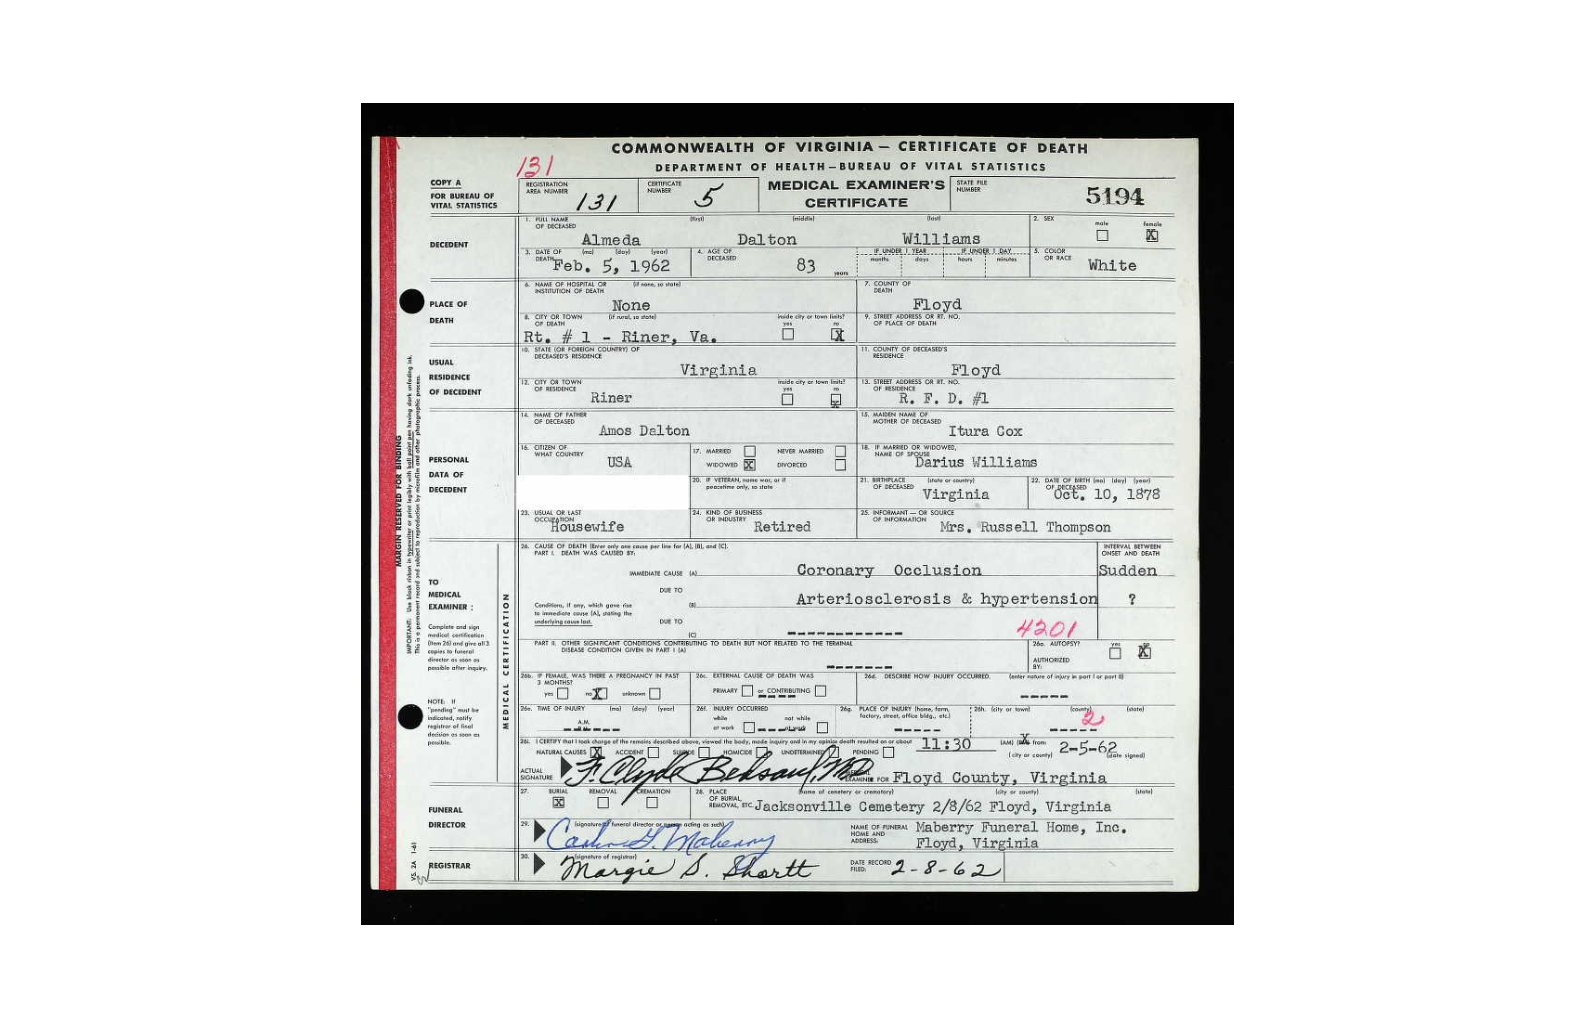 COMMONWEALTH OF VIRGINIA — CERTIFICATE OF DEATH
DEPARTMENT OF HEALTH—BUREAU OF VITAL STATISTICS
131
COPY A
FOR BUREAU OF
VITAL STATISTICS
REGISTRATION AREA NUMBER 131
CERTIFICATE NUMBER 5
MEDICAL EXAMINER'S
CERTIFICATE
STATE FILE NUMBER 5194
DECEDENT
1. FULL NAME OF DECEASED (first) (middle) (last)
Almeda Dalton Williams
2. SEX male female X
3. DATE OF DEATH (mo) (day) (year) Feb. 5, 1962
4. AGE OF DECEASED 83 years
IF UNDER 1 YEAR months days
IF UNDER 1 DAY hours minutes
5. COLOR OR RACE White
PLACE OF
DEATH
6. NAME OF HOSPITAL OR INSTITUTION OF DEATH (if none, so state)
None
7. COUNTY OF DEATH
Floyd
8. CITY OR TOWN OF DEATH (if rural, so state) inside city or town limits? yes no X
Rt. # 1 - Riner, Va.
9. STREET ADDRESS OR RT. NO. OF PLACE OF DEATH
USUAL
RESIDENCE
OF DECEDENT
10. STATE (OR FOREIGN COUNTRY) OF DECEASED'S RESIDENCE
Virginia
11. COUNTY OF DECEASED'S RESIDENCE
Floyd
12. CITY OR TOWN OF RESIDENCE inside city or town limits? yes no X
Riner
13. STREET ADDRESS OR RT. NO. OF RESIDENCE
R. F. D. #1
PERSONAL
DATA OF
DECEDENT
14. NAME OF FATHER OF DECEASED
Amos Dalton
15. MAIDEN NAME OF MOTHER OF DECEASED
Itura Cox
16. CITIZEN OF WHAT COUNTRY
USA
17. MARRIED NEVER MARRIED
WIDOWED X DIVORCED
18. IF MARRIED OR WIDOWED, NAME OF SPOUSE
Darius Williams
20. IF VETERAN, name war, or if peacetime only, so state
21. BIRTHPLACE OF DECEASED (state or country)
Virginia
22. DATE OF BIRTH (mo) (day) (year) OF DECEASED
Oct. 10, 1878
23. USUAL OR LAST OCCUPATION
Housewife
24. KIND OF BUSINESS OR INDUSTRY
Retired
25. INFORMANT — OR SOURCE OF INFORMATION
Mrs. Russell Thompson
MARGIN RESERVED FOR BINDING
IMPORTANT: Use black ribbon in typewriter or print legibly with ball point pen having dark unfading ink.
This is a permanent record and subject to reproduction by microfilm and other photographic process.
TO
MEDICAL
EXAMINER:
Complete and sign
medical certification
(Item 26) and give all 3
copies to funeral
director as soon as
possible after inquiry.
NOTE: If
"pending" must be
indicated, notify
registrar of final
decision as soon as
possible.
MEDICAL CERTIFICATION
26. CAUSE OF DEATH (Enter only one cause per line for (A), (B), and (C).
PART I. DEATH WAS CAUSED BY:
INTERVAL BETWEEN
ONSET AND DEATH
IMMEDIATE CAUSE (A) Coronary Occlusion Sudden
DUE TO
(B) Arteriosclerosis & hypertension ?
Conditions, if any, which gave rise
to immediate cause (A), stating the
underlying cause last.
DUE TO
(C) ------------
4201
PART II. OTHER SIGNIFICANT CONDITIONS CONTRIBUTING TO DEATH BUT NOT RELATED TO THE TERMINAL
DISEASE CONDITION GIVEN IN PART I (A)
-------
26a. AUTOPSY? yes no X
AUTHORIZED BY:
26b. IF FEMALE, WAS THERE A PREGNANCY IN PAST
3 MONTHS?
yes no X unknown
26c. EXTERNAL CAUSE OF DEATH WAS
PRIMARY or CONTRIBUTING
26d. DESCRIBE HOW INJURY OCCURRED. (enter nature of injury in part I or part II)
-----
26e. TIME OF INJURY (mo) (day) (year)
A.M.
26f. INJURY OCCURRED
while at work not while at work
26g. PLACE OF INJURY (home, farm, factory, street, office bldg., etc.)
26h. (city or town) (county) (state)
2
26i. I CERTIFY that I took charge of the remains described above, viewed the body, made inquiry and in my opinion death resulted on or about 11:30 (AM) X from
NATURAL CAUSES X ACCIDENT SUICIDE HOMICIDE UNDETERMINED PENDING
(city or county) 2-5-62 (date signed)
ACTUAL SIGNATURE F. Clyde Bedsaul, MD
EXAMINER FOR Floyd County, Virginia
FUNERAL
DIRECTOR
27. BURIAL X REMOVAL CREMATION
28. PLACE OF BURIAL, REMOVAL, ETC. (name of cemetery or crematory) (city or county) (state)
Jacksonville Cemetery 2/8/62 Floyd, Virginia
29. (signature of funeral director or person acting as such)
NAME OF FUNERAL HOME AND ADDRESS:
Maberry Funeral Home, Inc.
Floyd, Virginia
REGISTRAR
30. (signature of registrar)
Margie S. Shortt
DATE RECORD FILED: 2-8-62
VS. 2A 1-61